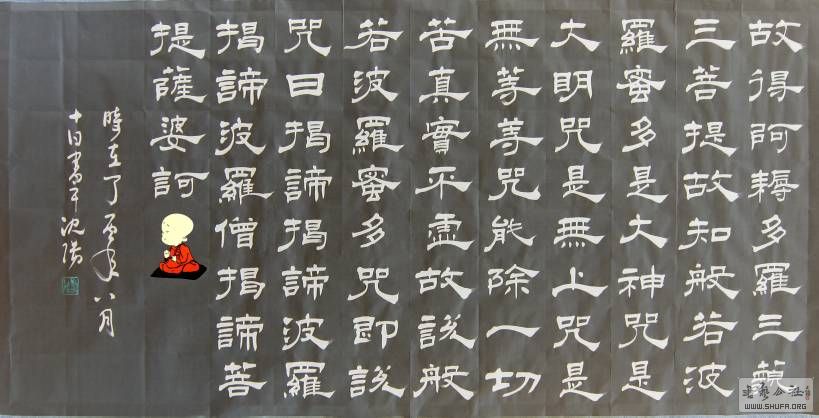 故得阿耨多羅三藐
三菩提故知般若波
羅蜜多是大神咒是
大明咒是無上咒是
無等等咒能除一切
苦真實不虛故說般
若波羅蜜多咒即說
咒曰揭諦揭諦波羅
揭諦波羅僧揭諦菩
提薩婆訶
時在丁酉年八月
十日書于沈陽
书艺公社
WWW.SHUFA.ORG